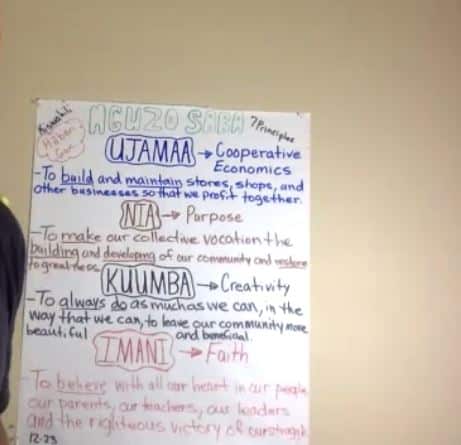 Kiswahili
Habari
Gani
NGUZO SABA
7 Principles
UJAMAA → Cooperative
Economics
-To build and maintain stores, shops, and
other businesses so that we profit together.
NIA → Purpose
-To make our collective vocation the
building and developing of our community and restore
to greatness.
KUUMBA → Creativity
-To always do as much as we can, in the
way that we can, to leave our community more
beautiful and beneficial.
IMANI → Faith
-To believe with all our heart in our people
our parents, our teachers, our leaders
and the righteous victory of our struggle
12-23